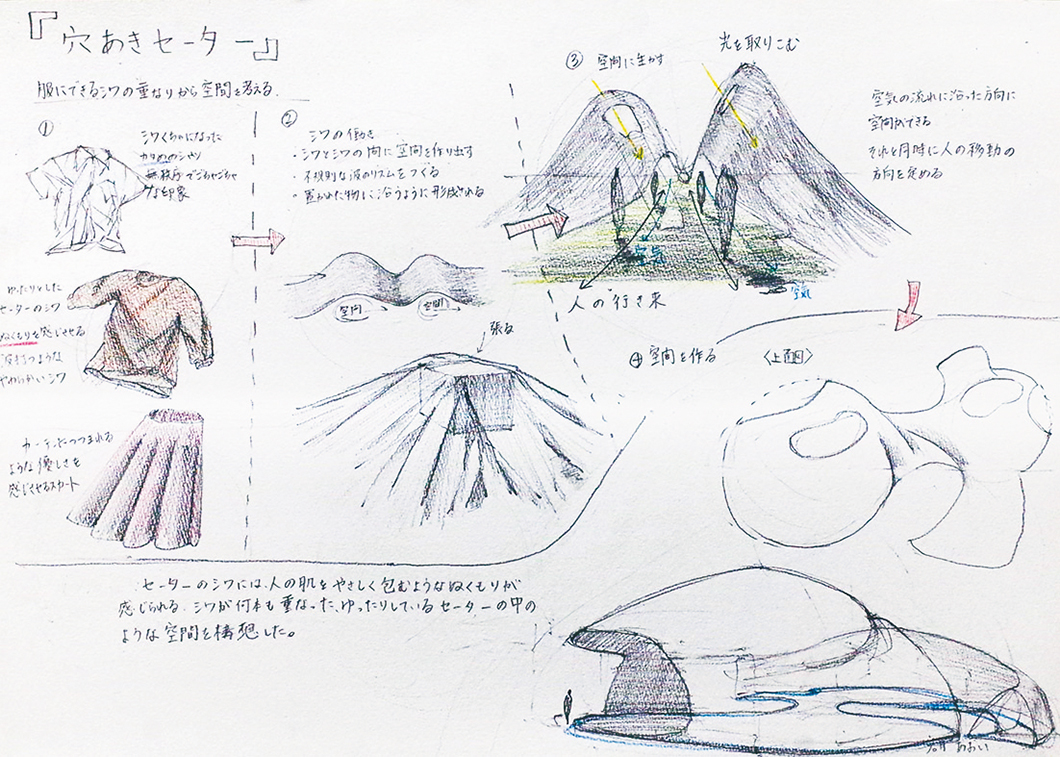 『穴あきセーター』
服にできるシワの重なりから空間を考える.
①
シワくちゃになった
かためのシャツ
無秩序でごちゃごちゃ
な印象
ゆったりとした
セーターのシワ
ぬくもりを感じさせる
波打つような
やわらかいシワ
カーテンにつつまれる
ような優しさを
感じさせるスカート
②
シワの働き
・シワとシワの間に空間を作り出す
・不規則な波のリズムをつくる
・置かれた物に沿うように形成される
空間
空間
張る
③ 空間に生かす
光を取りこむ
空気の流れに沿った方向に
空間ができる
それと同時に人の移動の
方向を定める
空気
空気
人の行き来
④ 空間を作る 〈上面図〉
セーターのシワには、人の肌をやさしく包むようなぬくもりが
感じられる。シワが何本も重なった、ゆったりしているセーターの中の
ような空間を構想した。
あおい